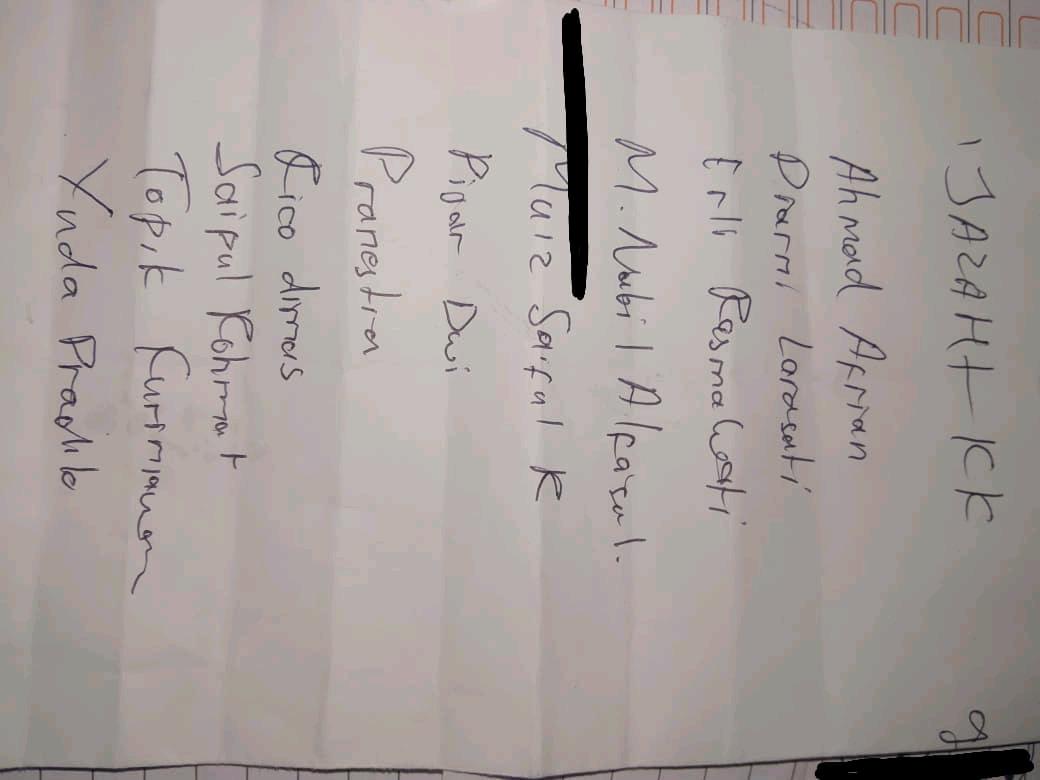 IJAZAH - KK
Ahmad Afrian
Diarni Larasati
Erli Rosmawati
M. Nabil Alfarul.
Muiz Saiful K
Dwi
Pranestra
Rico dimas
Saipul Rohmat
Topik Kurniawan
Yuda